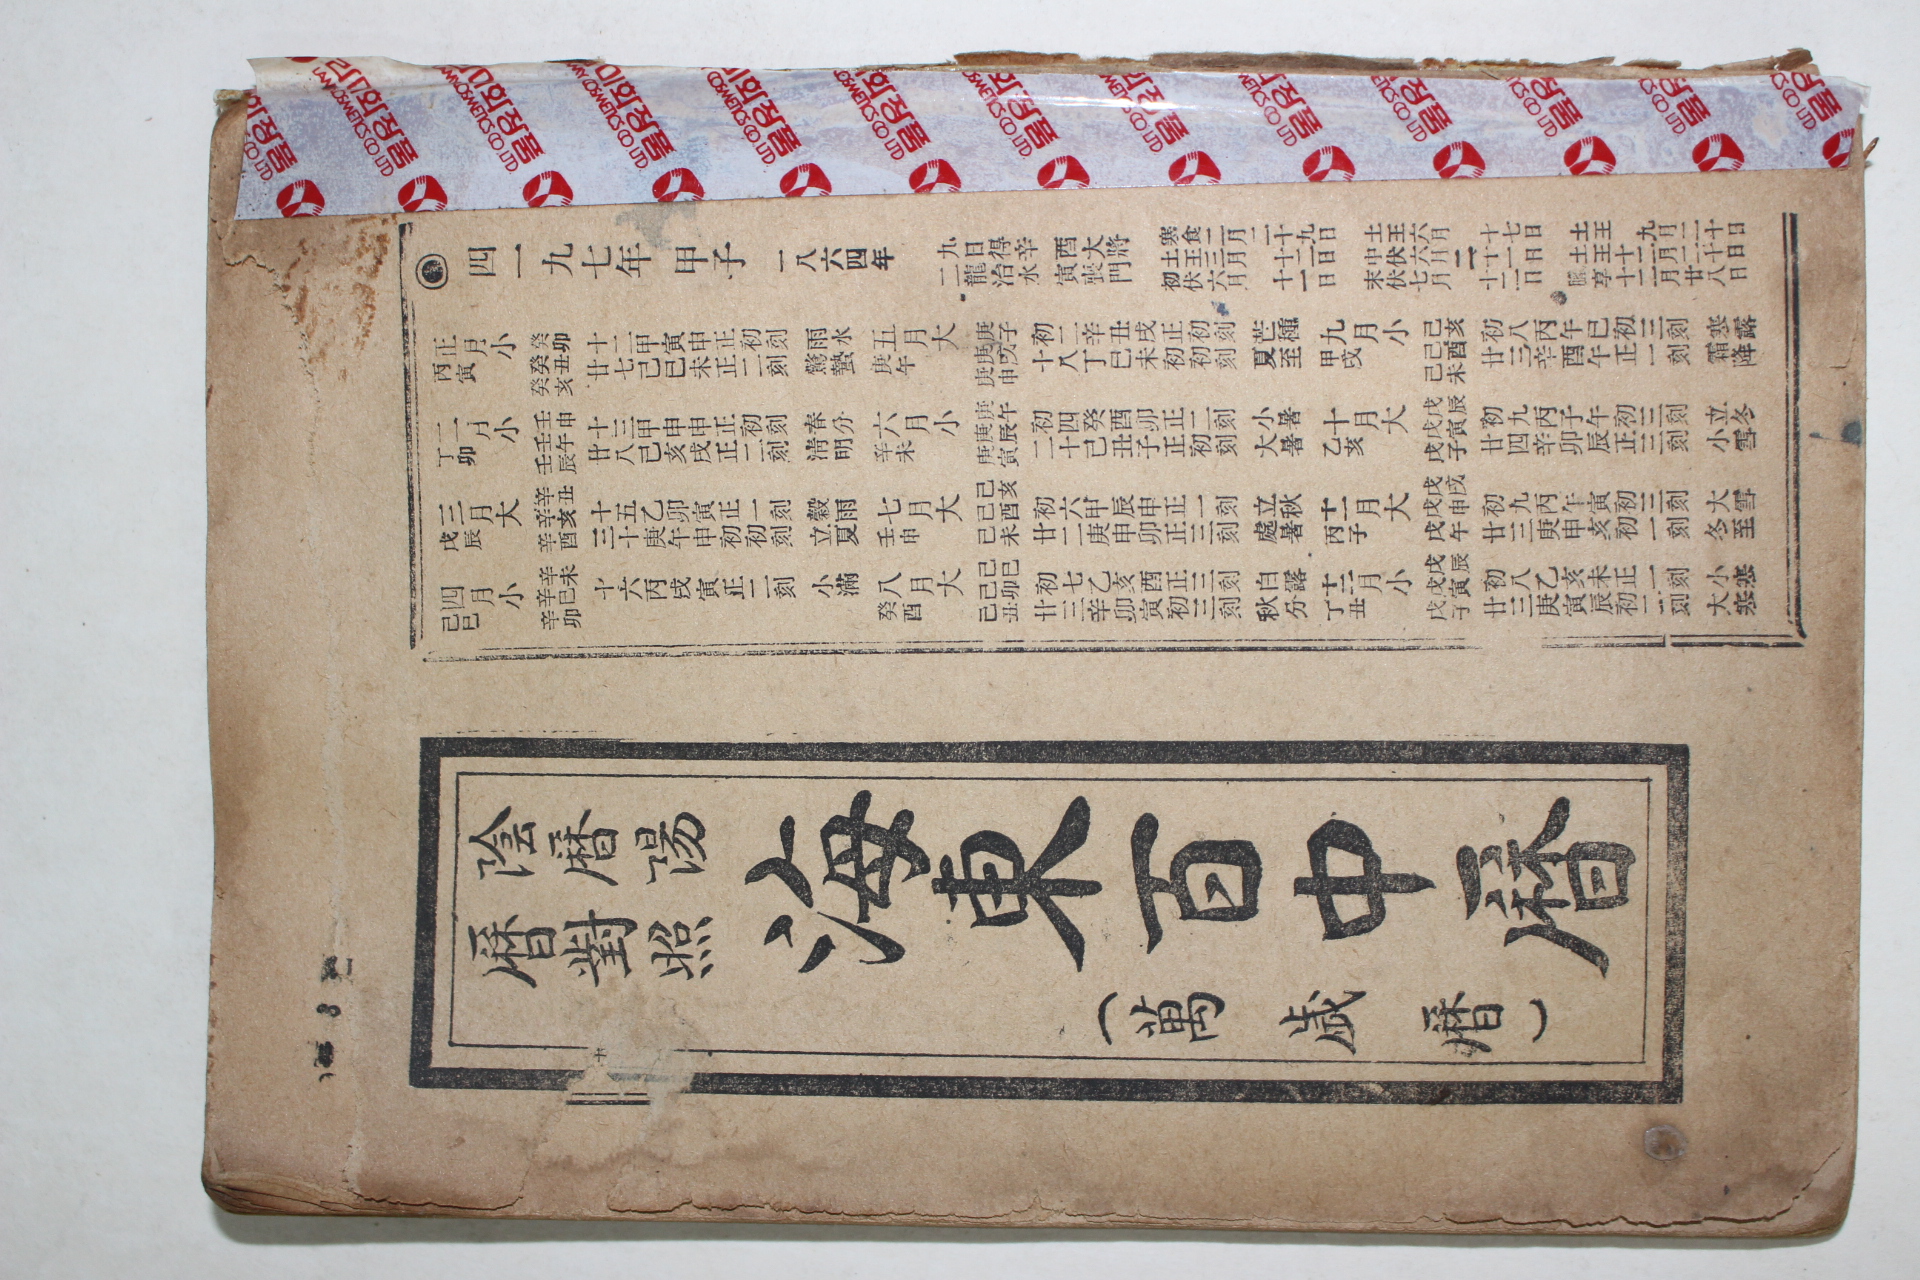 四一九七年 甲子 一八六四年
九日得辛 酉大將
二龍治水 寅喪門
寒食二月二十九日 土王六月 十七日 土王 九月二十日
土王三月 十二日 中伏六月二十一日 土王十二月二十日
初伏六月 十一日 末伏七月 十二日 臘享十二月廿八日
正月小 丙寅 癸卯 癸丑 癸亥 十二甲寅申正初刻 雨水 廿七己巳未正二刻 驚蟄
五月大 庚午 庚子 庚戌 庚申 初二辛丑戌正初刻 芒種 十八丁巳未初初刻 夏至
九月小 甲戌 己亥 己酉 己未 初八丙午巳初三刻 寒露 廿三辛酉午正一刻 霜降
二月小 丁卯 壬申 壬午 壬辰 十三甲申申正初刻 春分 廿八己亥戌正二刻 淸明
六月小 辛未 庚午 庚辰 庚寅 初四癸酉卯正二刻 小暑 二十己丑子正初刻 大暑
十月大 乙亥 戊辰 戊寅 戊子 初九丙子午初三刻 立冬 廿四辛卯辰正三刻 小雪
三月大 戊辰 辛丑 辛亥 辛酉 十五乙卯寅正一刻 穀雨 三十庚午申初初刻 立夏
七月大 壬申 己亥 己酉 己未 初六甲辰申正一刻 立秋 廿二庚申卯正三刻 處暑
十一月大 丙子 戊戌 戊申 戊午 初九丙午寅初三刻 大雪 廿三庚申亥初一刻 冬至
四月小 己巳 辛未 辛巳 辛卯 十六丙戌寅正二刻 小滿
八月大 癸酉 己巳 己卯 己丑 初七乙亥酉正三刻 白露 廿三辛卯寅初三刻 秋分
十二月小 丁丑 戊辰 戊寅 戊子 初八乙亥未正一刻 小寒 廿三庚寅辰初二刻 大寒
陰曆陽
曆對照
海東百中曆
(萬歲曆)
라미화장품
LAMY COSMETICS CO LTD